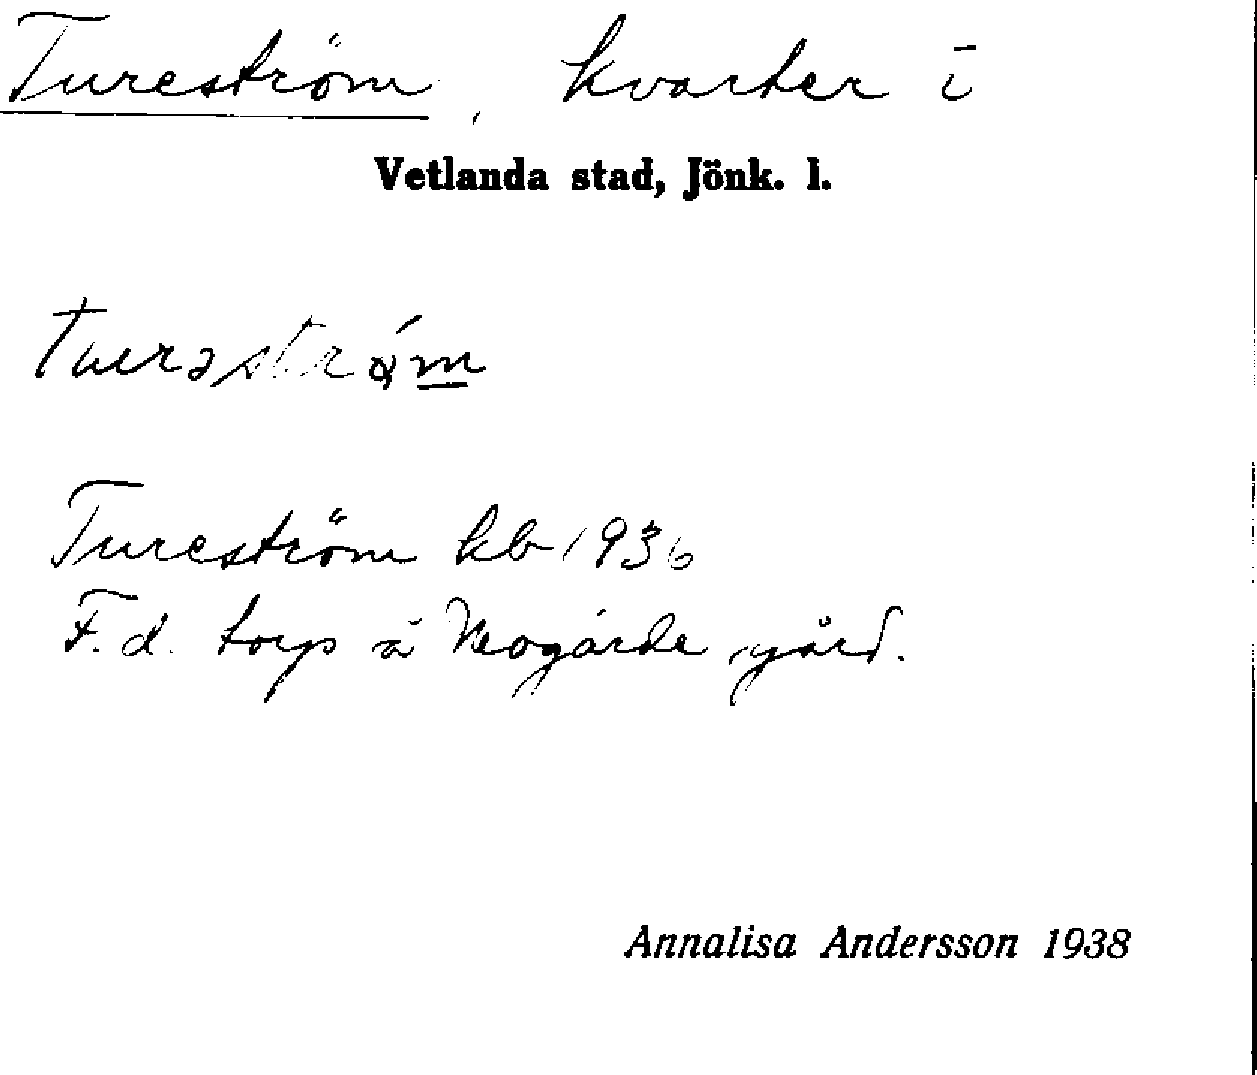 Tureström, kvarter i
Vetlanda stad, Jönk. l.
Tureström kb 1936
F.d. torp å Mogärde gård.
Annalisa Andersson 1938